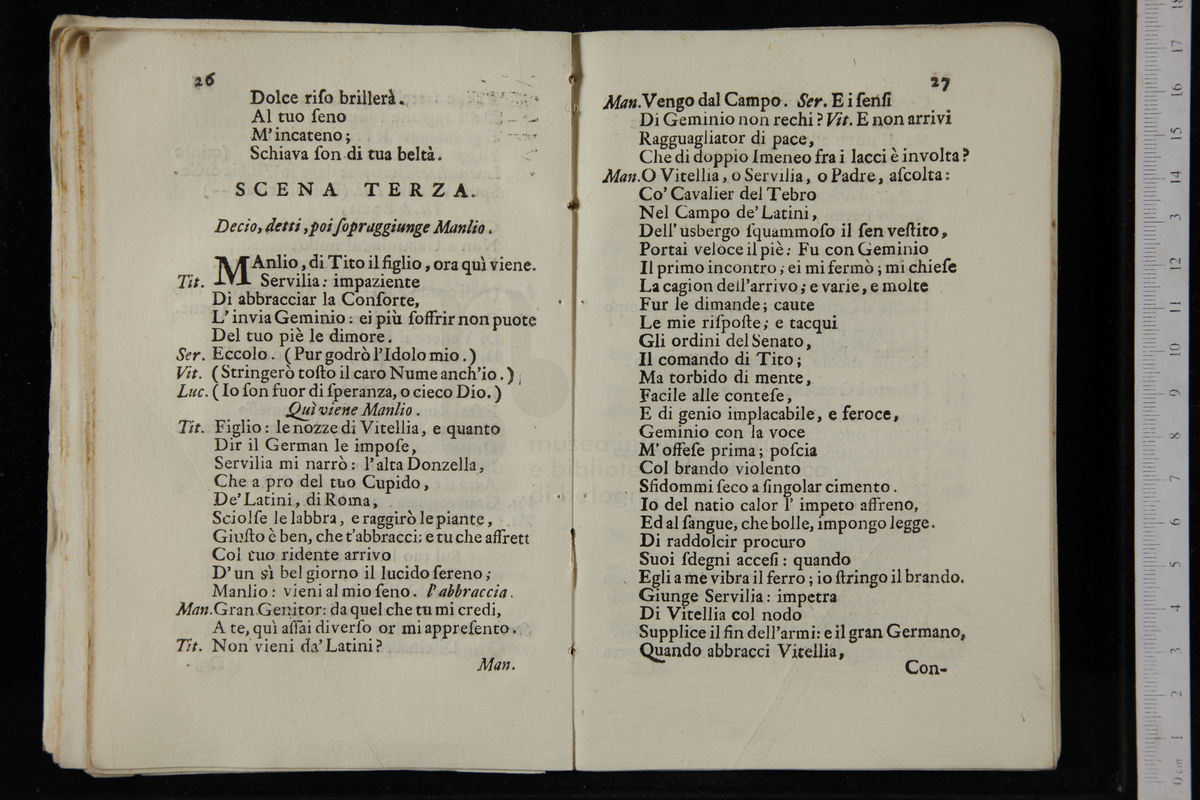 26
Dolce riſo brillerà.
Al tuo ſeno
M'incateno;
Schiava ſon di tua beltà.
SCENA TERZA.
Decio, detti, poi ſopraggiunge Manlio.
Tit. MAnlio, di Tito il figlio, ora quì viene.
Servilia: impaziente
Di abbracciar la Conſorte,
L'invia Geminio: ei più ſoffrir non puote
Del tuo piè le dimore.
Ser. Eccolo. (Pur godrò l'Idolo mio.)
Vit. (Stringerò toſto il caro Nume anch'io.)
Luc. (Io ſon fuor di ſperanza, o cieco Dio.)
Quì viene Manlio.
Tit. Figlio: le nozze di Vitellia, e quanto
Dir il German le impoſe,
Servilia mi narrò: l'alta Donzella,
Che a pro del tuo Cupido,
De'Latini, di Roma,
Sciolſe le labbra, e raggirò le piante,
Giuſto è ben, che t'abbracci: e tu che affrett
Col tuo ridente arrivo
D'un sì bel giorno il lucido ſereno;
Manlio: vieni al mio ſeno. l'abbraccia.
Man. Gran Genitor: da quel che tu mi credi,
A te, quì aſſai diverſo or mi appreſento.
Tit. Non vieni da'Latini?
Man.
27
Man. Vengo dal Campo. Ser. E i ſenſi
Di Geminio non rechi? Vit. E non arrivi
Ragguagliator di pace,
Che di doppio Imeneo fra i lacci è involta?
Man. O Vitellia, o Servilia, o Padre, aſcolta:
Co' Cavalier del Tebro
Nel Campo de' Latini,
Dell' usbergo ſquammoſo il ſen veſtito,
Portai veloce il piè: Fu con Geminio
Il primo incontro; ei mi fermò; mi chieſe
La cagion dell'arrivo; e varie, e molte
Fur le dimande; caute
Le mie riſpoſte; e tacqui
Gli ordini del Senato,
Il comando di Tito;
Ma torbido di mente,
Facile alle conteſe,
E di genio implacabile, e feroce,
Geminio con la voce
M' offeſe prima; poſcia
Col brando violento
Sfidommi ſeco a ſingolar cimento.
Io del natio calor l' impeto affreno,
Ed al ſangue, che bolle, impongo legge.
Di raddolcir procuro
Suoi ſdegni acceſi: quando
Egli a me vibra il ferro; io ſtringo il brando.
Giunge Servilia: impetra
Di Vitellia col nodo
Supplice il fin dell'armi: e il gran Germano,
Quando abbracci Vitellia,
Con-